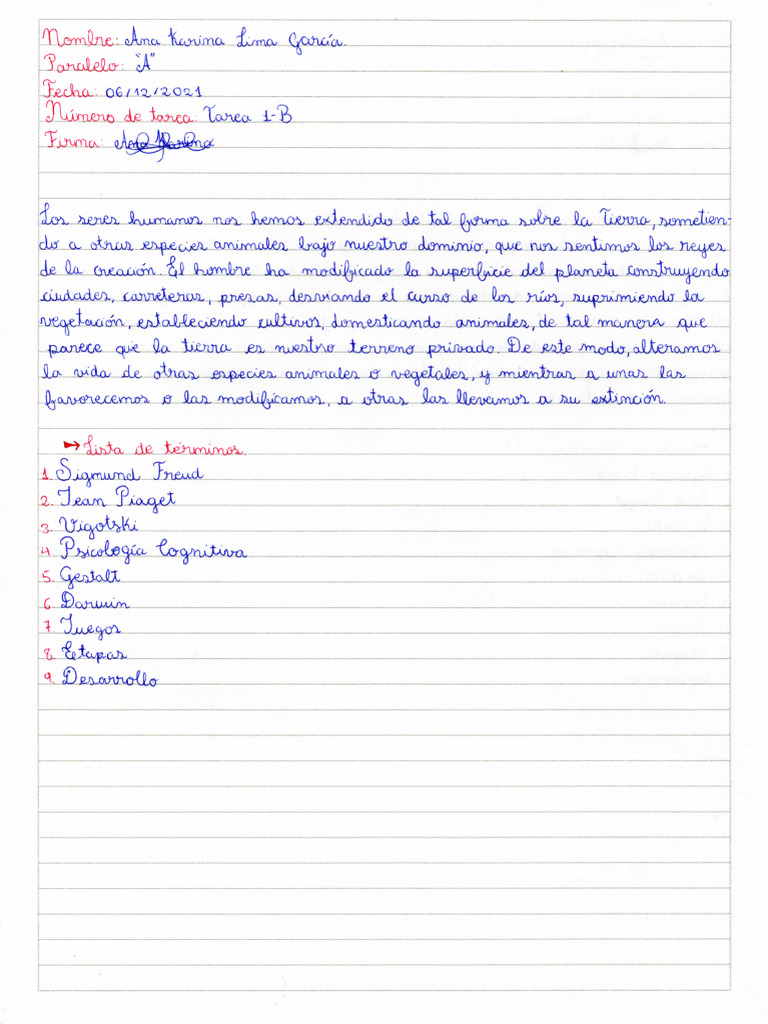 Nombre: Ana Karina Lima García.
Paralelo: "A"
Fecha: 06/12/2021
Número de tarea: Tarea 1-B
Firma: Ana Karina
Los seres humanos nos hemos extendido de tal forma sobre la Tierra, sometien-
do a otras especies animales bajo nuestro dominio, que nos sentimos los reyes
de la creación. El hombre ha modificado la superficie del planeta construyendo
ciudades, carreteras, presas, desviando el curso de los ríos, suprimiendo la
vegetación, estableciendo cultivos, domesticando animales, de tal manera que
parece que la tierra es nuestro terreno privado. De este modo, alteramos
la vida de otras especies animales o vegetales, y mientras a unas las
favorecemos o las modificamos, a otras las llevamos a su extinción.
Lista de términos.
1. Sigmund Freud
2. Jean Piaget
3. Vigotski
4. Psicología Cognitiva
5. Gestalt
6. Darwin
7. Juegos
8. Etapas
9. Desarrollo